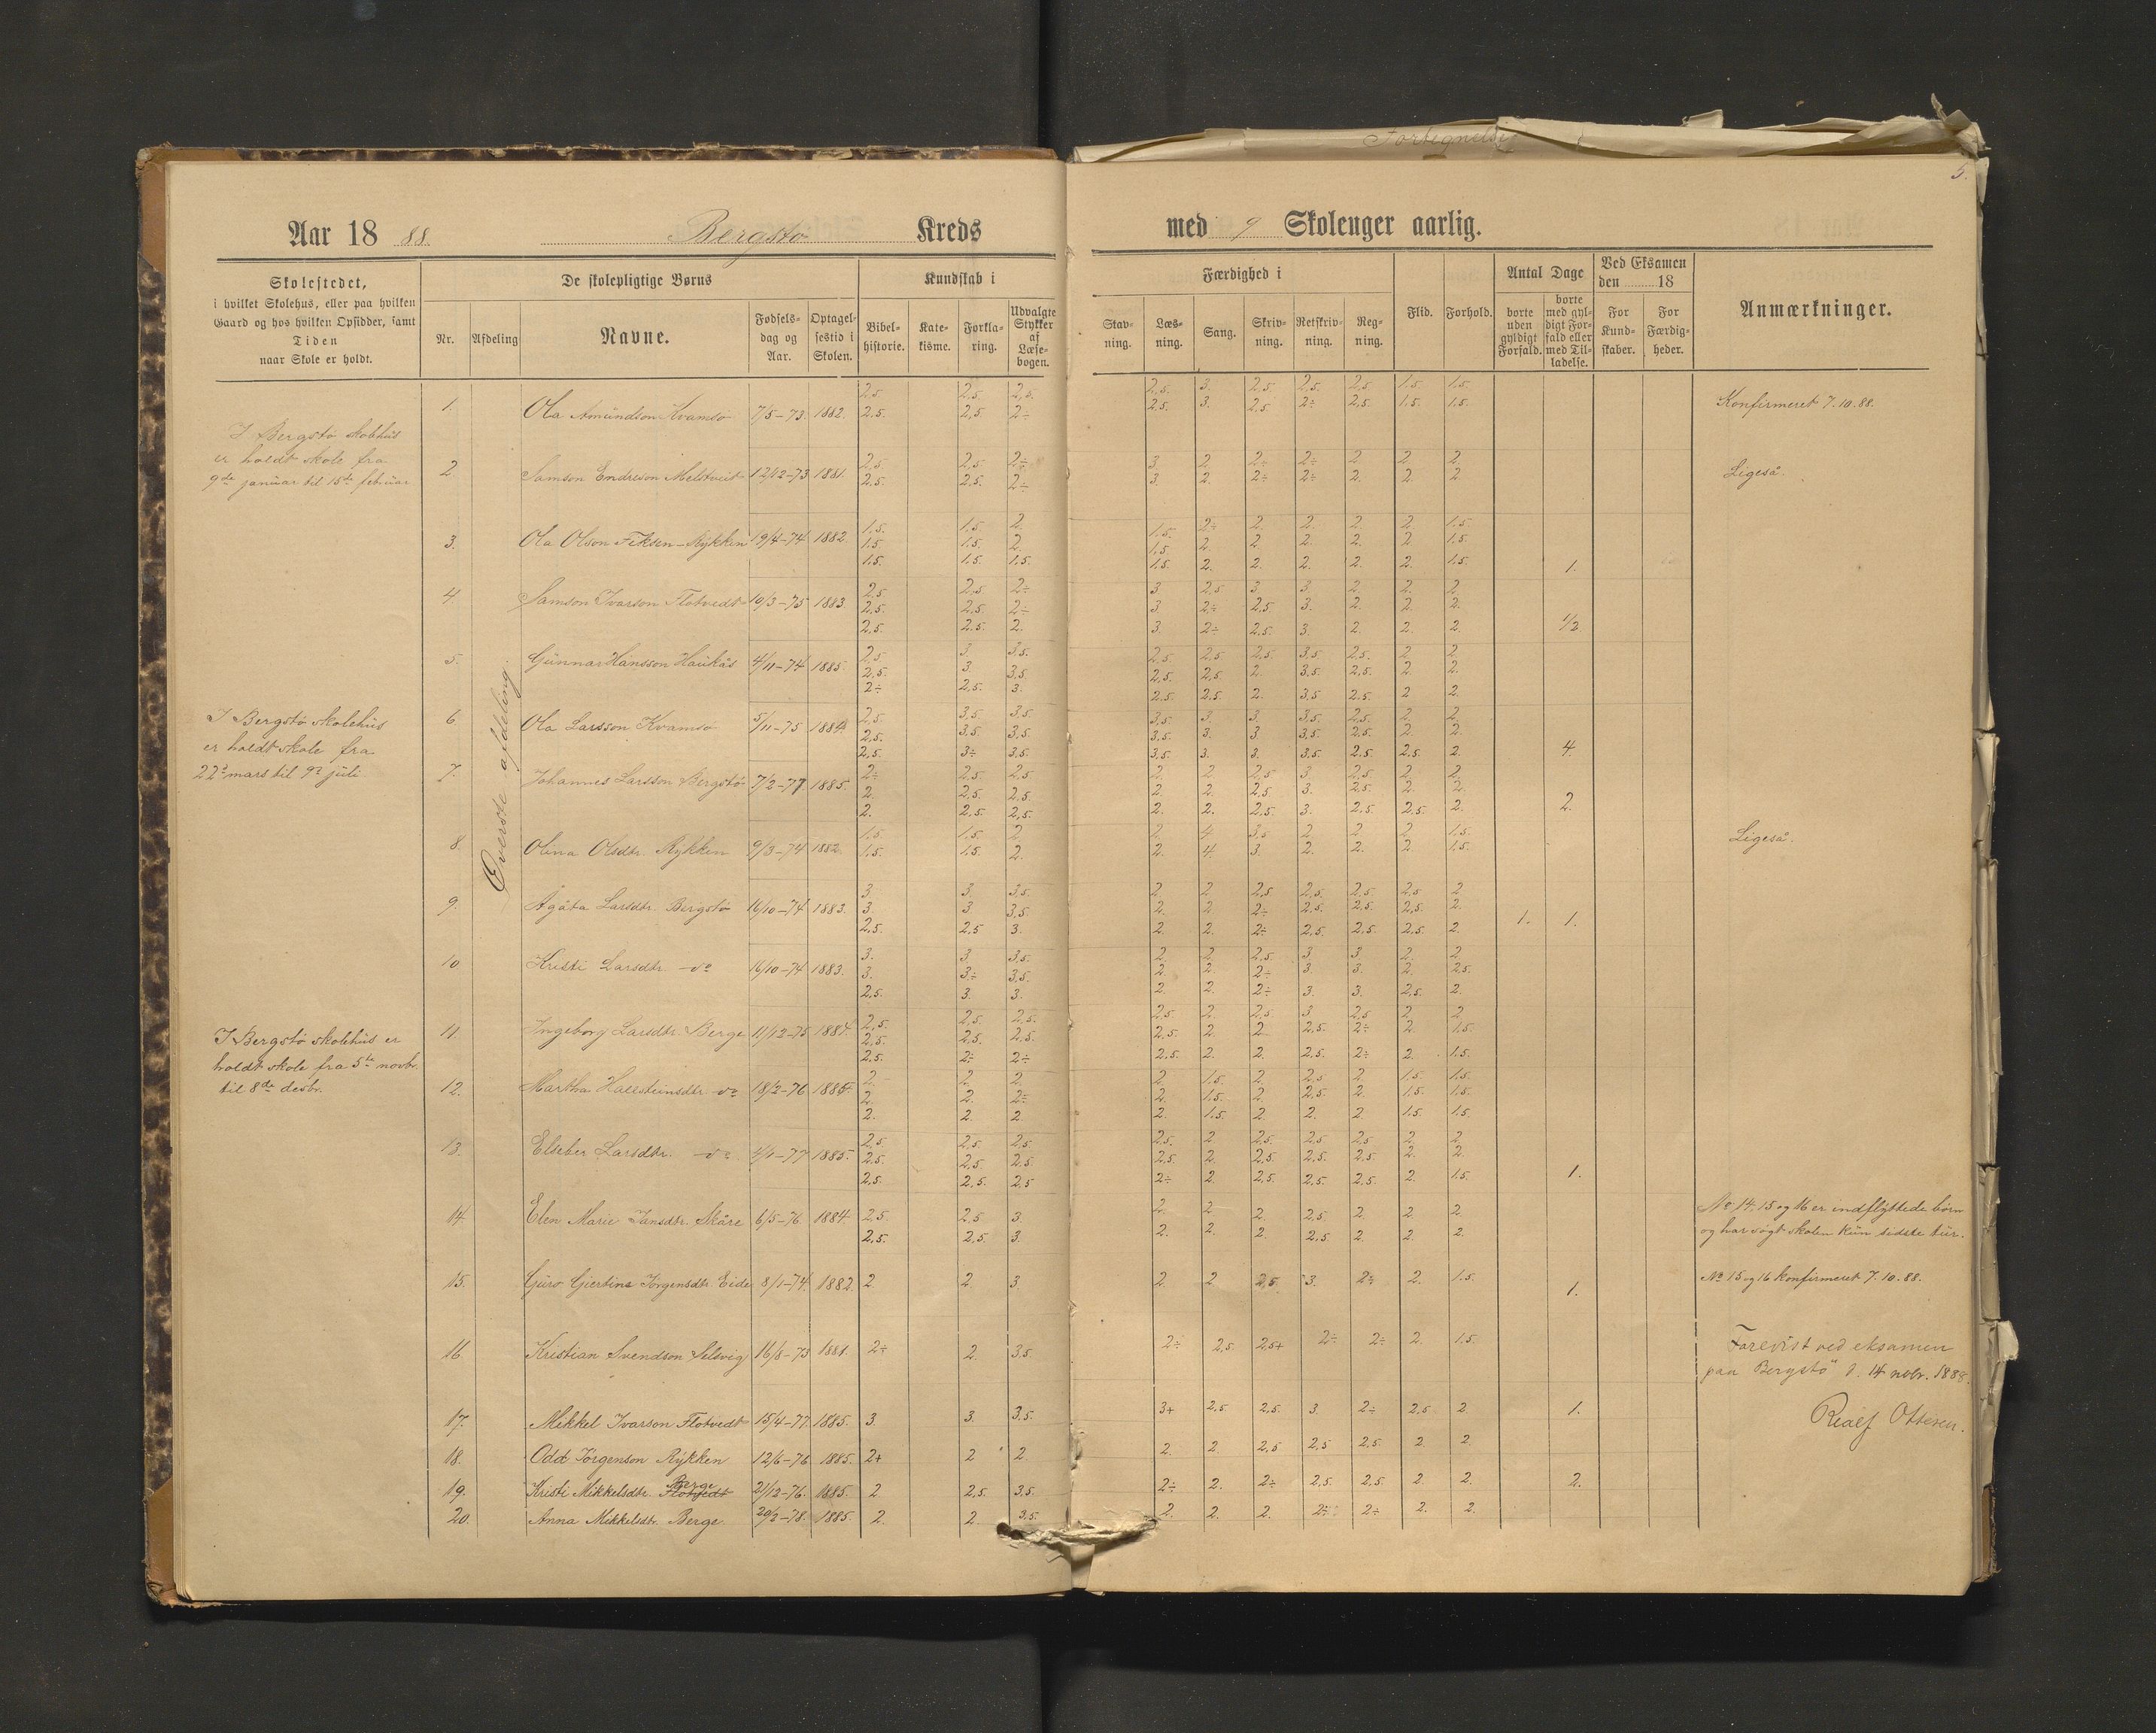 Fortegnelse
5.
Aar 1888. Bergstø Kreds med 9 Skoleuger aarlig.
Skolestedet,
i hvilket Skolehus, eller paa hvilken
Gaard og hos hvilken Opsidder, samt
Tiden
naar Skole er holdt.
De skolepligtige Børns
Nr. Afdeling Navne. Fødsels-dag og Aar. Optagel-sestid i Skolen.
Kundskab i
Bibel-historie. Kate-kisme. Forkla-ring. Udvalgte Stykker af Læse-bogen.
Færdighed i
Stav-ning. Læs-ning. Sang. Skriv-ning. Retskriv-ning. Reg-ning.
Flid. Forhold.
Antal Dage
borte uden gyldigt Forfald. borte med gyl-digt For-fald eller med Til-ladelse.
Ved Eksamen
den 18
For Kund-skaber. For Færdig-heder.
Anmærkninger.
I Bergstø skolhus
er holdt skole fra
9de januar til 15de februar
I Bergstø skolehus
er holdt skole fra
22d mars til 9d juli
I Bergstø skolehus er
holdt skole fra 5te novbr.
til 8de desbr.
Øverste afdeling.
1. Ola Amundson Kvamsø 7/5-73. 1882. 2,5 2,5 2,5. 2,5. 3. 2,5 2,5. 2,5 1.5 1.5.
2.5. 2,5 2÷ 2,5. 3. 2,5 2÷ 2,5. 1.5. 1.5. Konfirmeret 7.10.88.
2 Samson Endreson Melstveit 12/12-73 1881. 2,5 2,5. 2÷ 3 2 2÷ 2÷ 2 2 2
2.5. 2.5. 2÷ 3. 2. 2÷ 2÷ 2. 2. 2. Ligeså.
3. Ola Olson Feksen-Rykken 19/4-74 1882. 1,5. 1.5. 2 1.5. 2÷ 2. 2. 2. 2. 1.5.
1.5 1.5. 2. 1.5. 2. 2 2. 2. 2 1.5
1.5. 1.5. 1.5. 1.5. 2. 2. 2. 2. 2. 1.5. 1.
4 Samson Ivarson Flotvedt 10/3-75 1883. 2,5 2,5 2÷ 3 2,5 3 3 2 2 2
2,5. 2,5. 2÷ 3. 2÷ 2,5 3. 2. 2. 2.
2,5. 2.5. 2. 3. 2÷ 2.5. 3. 2. 2. 2. 1/2
5. Gunnar Hansson Haukås 4/11-74 1885. 2,5 3 3.5. 2,5. 2,5 2,5 3,5 2,5. 2 2
2,5. 3. 3,5 2,5. 2,5 2. 3,5. 2,5. 2 2.
2÷ 2,5. 3. 2.5 2.5. 2. 3,5 2.5 2 2.
6. Ola Larsson Kvamsø 5/11-75 1884. 2,5 3,5. 3,5. 3,5. 3. 3. 3,5 2,5. 2. 2.
2,5. 3.5. 3.5. 3.5. 3. 3 3.5. 2.5. 2. 2.
2,5. 3÷ 3.5. 3.5. 3. 3. 3.5 2.5 2.5. 2. 4
7. Johannes Larsson Bergstø 7/2-77 1885. 2÷ 2,5. 2,5 2 2 2,5 3 2,5 2 2.
2. 2,5. 2,5. 2. 2. 2,5 3. 2.5. 2. 2.
2. 2,5. 2,5. 2. 2. 2,5. 3. 2,5. 2,5. 2. 2.
8. Olina Olsdtr. Rykken 9/3-74 1882. 1.5 1.5. 2 2. 4 3,5 2 2 2 1.5.
1.5. 1.5. 2. 2. 4. 3. 2. 2. 2 1.5. Ligeså.
9. Agåta Larsdtr. Bergstø 16/10-74 1883. 3 3. 3,5. 2 2 2,5 2,5. 2,5 2,5 2
3. 3 3.5. 2. 2 2÷ 2.5. 2,5. 2,5. 2.
2,5. 2,5 3. 2. 2. 2÷ 2,5. 2,5. 2,5 2. 1. 1.
10 Kristi Larsdtr. -do 16/10-74 1883. 3. 3 3,5. 2. 2 2,5. 3 3 2. 2
3. 3÷ 3,5. 2. 2. 2÷ 3. 3. 2. 2.5.
2,5. 3. 3. 2. 2. 2÷ 3. 3. 2,5. 2.
11. Ingeborg Larsdtr. Berge 11/12-75 1884. 2,5. 2,5 2,5. 2,5 2. 2,5 3 2,5 2 2
2,5. 2,5. 2,5. 2,5. 2. 2 2,5. 2÷ 2. 1.5.
2,5. 2÷ 2÷ 2,5. 2. 2. 2,5. 2÷ 2. 1.5.
12. Martha Hallsteinsdtr -do 18/2-76 1885. 2. 2 2. 2 1.5. 2 2,5 2 1.5. 1.5.
2. 2. 2÷ 2. 1.5. 2. 2,5. 2. 1.5. 1.5.
2. 2. 2 2. 1.5. 2 2. 2. 1.5. 1.5
13. Elseber Larsdtr. -do. 4/1-77 1885. 2,5 2,5 2,5. 2,5. 2 2,5. 2,5 2,5 2 2.
2,5. 2,5. 2,5 2,5 2. 2,5 2,5. 2,5. 2. 2.
2,5. 2,5. 2,5 2÷ 2. 2,5. 2,5. 2,5. 2. 1.5. 1.
14. Elen Marie Jansdtr. Skåre 6/5-76. 1884. 2,5. 2,5 3. 2. 2. 2. 2,5 2. 2. 2.
2,5. 2,5. 3. 2. 2. 2. 2,5 2. 2. 2.
No 14, 15 og 16 er indflyttede børn
og har søgt skolen kun sidste tur.
15. Guro Gjertine Jørgensdtr. Eide 8/1-74. 1882. 2 2. 3. 2. 2 2,5. 3. 2÷ 2. 1.5. 1.
No 15 og 16 konfirmeret 7.10.88.
16. Kristian Svendson Selsvig 16/8-73 1881. 2÷ 2. 3.5. 2÷ 2,5. 2,5+ 2÷ 2÷ 2. 1.5.
Forevist ved eksamen
paa Bergstø d. 14 nobr. 1888.
17. Mikkel Ivarson Flotvedt 15/4-77. 1885. 3. 3. 3,5. 3+ 2,5 2,5. 3 2÷ 2,5. 2 1.
Ottesen.
18. Odd Jørgenson Rykken 12/6-76 1885. 2+ 2 2 2. 2. 2,5 2,5 2,5. 2. 2.
19. Kristi Mikkelsdtr. Flotvedt Berge 21/12-76. 1885. 2 2,5. 3,5. 2÷ 2. 2÷ 2,5. 2,5. 2. 2. 2.
20. Anna Mikkelsdtr. Berge 20/2-78. 1885. 2. 2 3,5. 2. 2. 2. 2÷ 2÷ 2. 2.